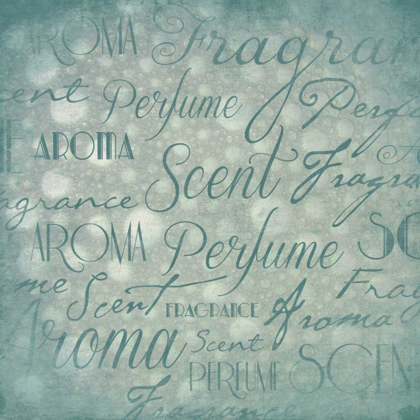 AROMA Fragran
ent Perfume Perf
ME AROMA Scent Fragra
agrance
AROMA Perfume SC
me Scent FRAGRANCE Aroma Frag
Aroma Scent
PERFUME SCEN
Fragrance